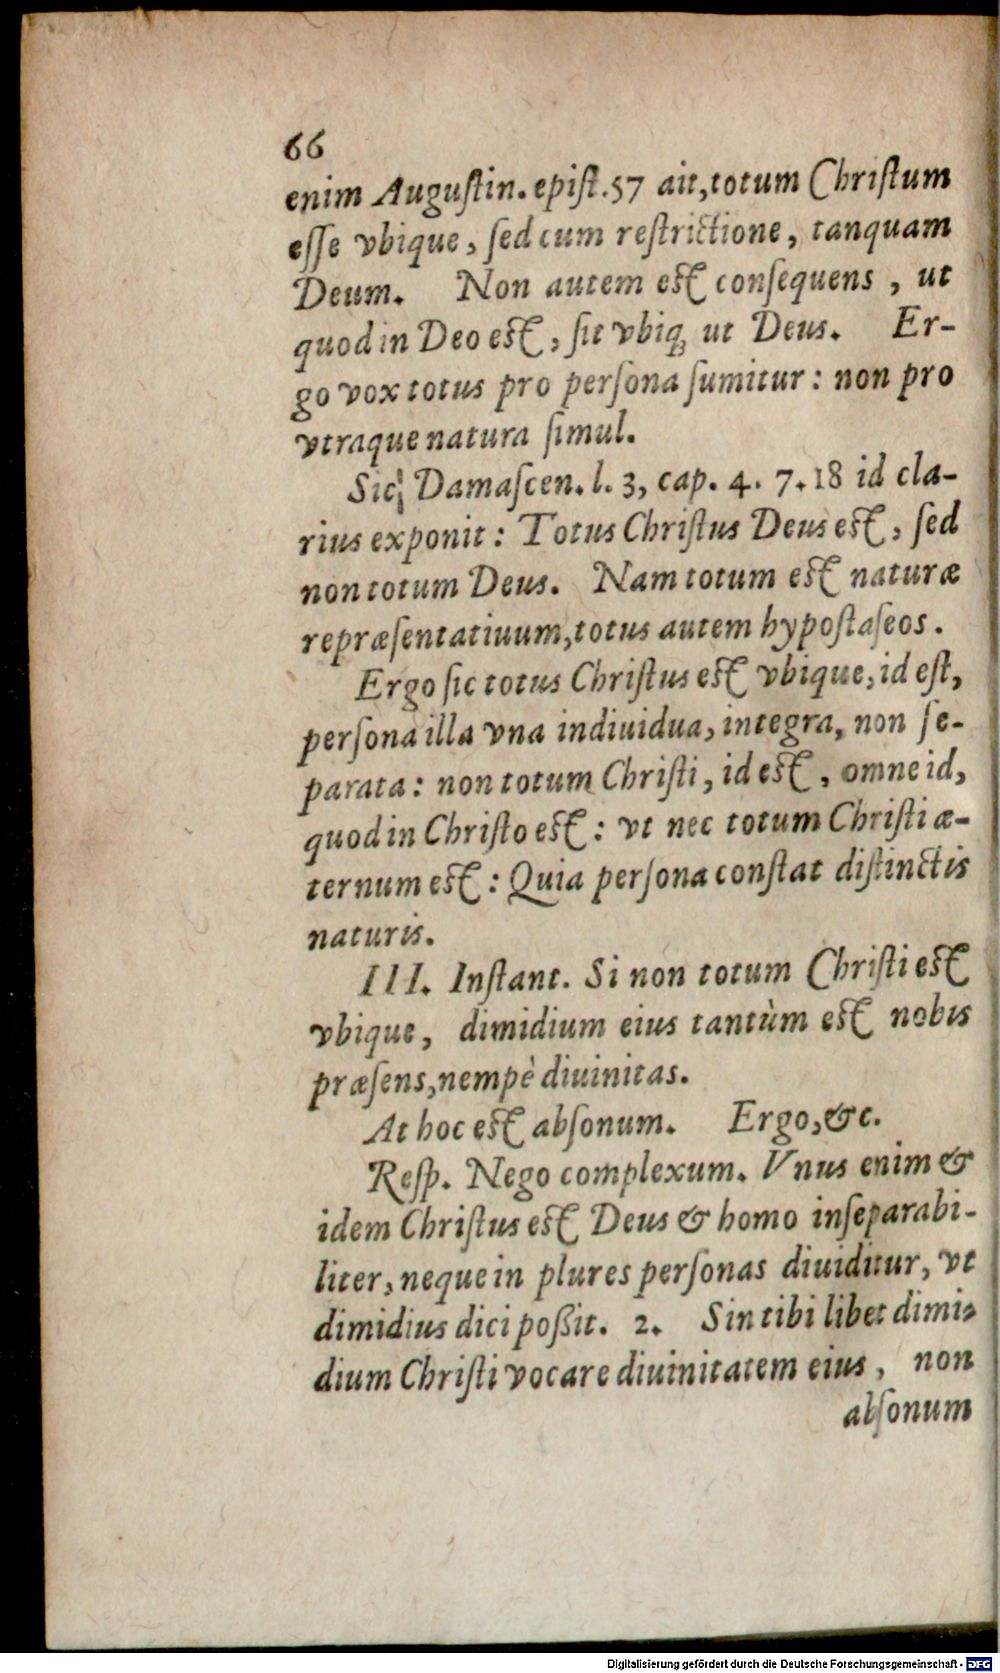 66
enim Auguſtin. epiſt. 57 ait, totum Chriſtum
eſſe vbique, ſed cum reſtrictione, tanquam
Deum. Non autem eſt conſequens, ut
quod in Deo eſt, ſit vbiq; ut Deus. Er-
go vox totus pro perſona ſumitur: non pro
vtraque natura ſimul.
Sic Damaſcen. l. 3, cap. 4. 7. 18 id cla-
rius exponit: Totus Chriſtus Deus eſt, ſed
non totum Deus. Nam totum eſt naturæ
repræſentatiuum, totus autem hypoſtaſeos.
Ergo ſic totus Chriſtus eſt vbique, id eſt,
perſona illa vna indiuidua, integra, non ſe-
parata: non totum Chriſti, id eſt, omne id,
quod in Chriſto eſt: vt nec totum Chriſti æ-
ternum eſt: Quia perſona conſtat diſtinctis
naturis.
III. Inſtant. Si non totum Chriſti eſt
vbique, dimidium eius tantùm eſt nobis
præſens, nempè diuinitas.
At hoc eſt abſonum. Ergo, &c.
Reſp. Nego complexum. Vnus enim &
idem Chriſtus eſt Deus & homo inſeparabi-
liter, neque in plures perſonas diuiditur, vt
dimidius dici poßit. 2. Sin tibi libet dimi-
dium Chriſti vocare diuinitatem eius, non
abſonum
Digitalisierung gefördert durch die Deutsche Forschungsgemeinschaft - DFG